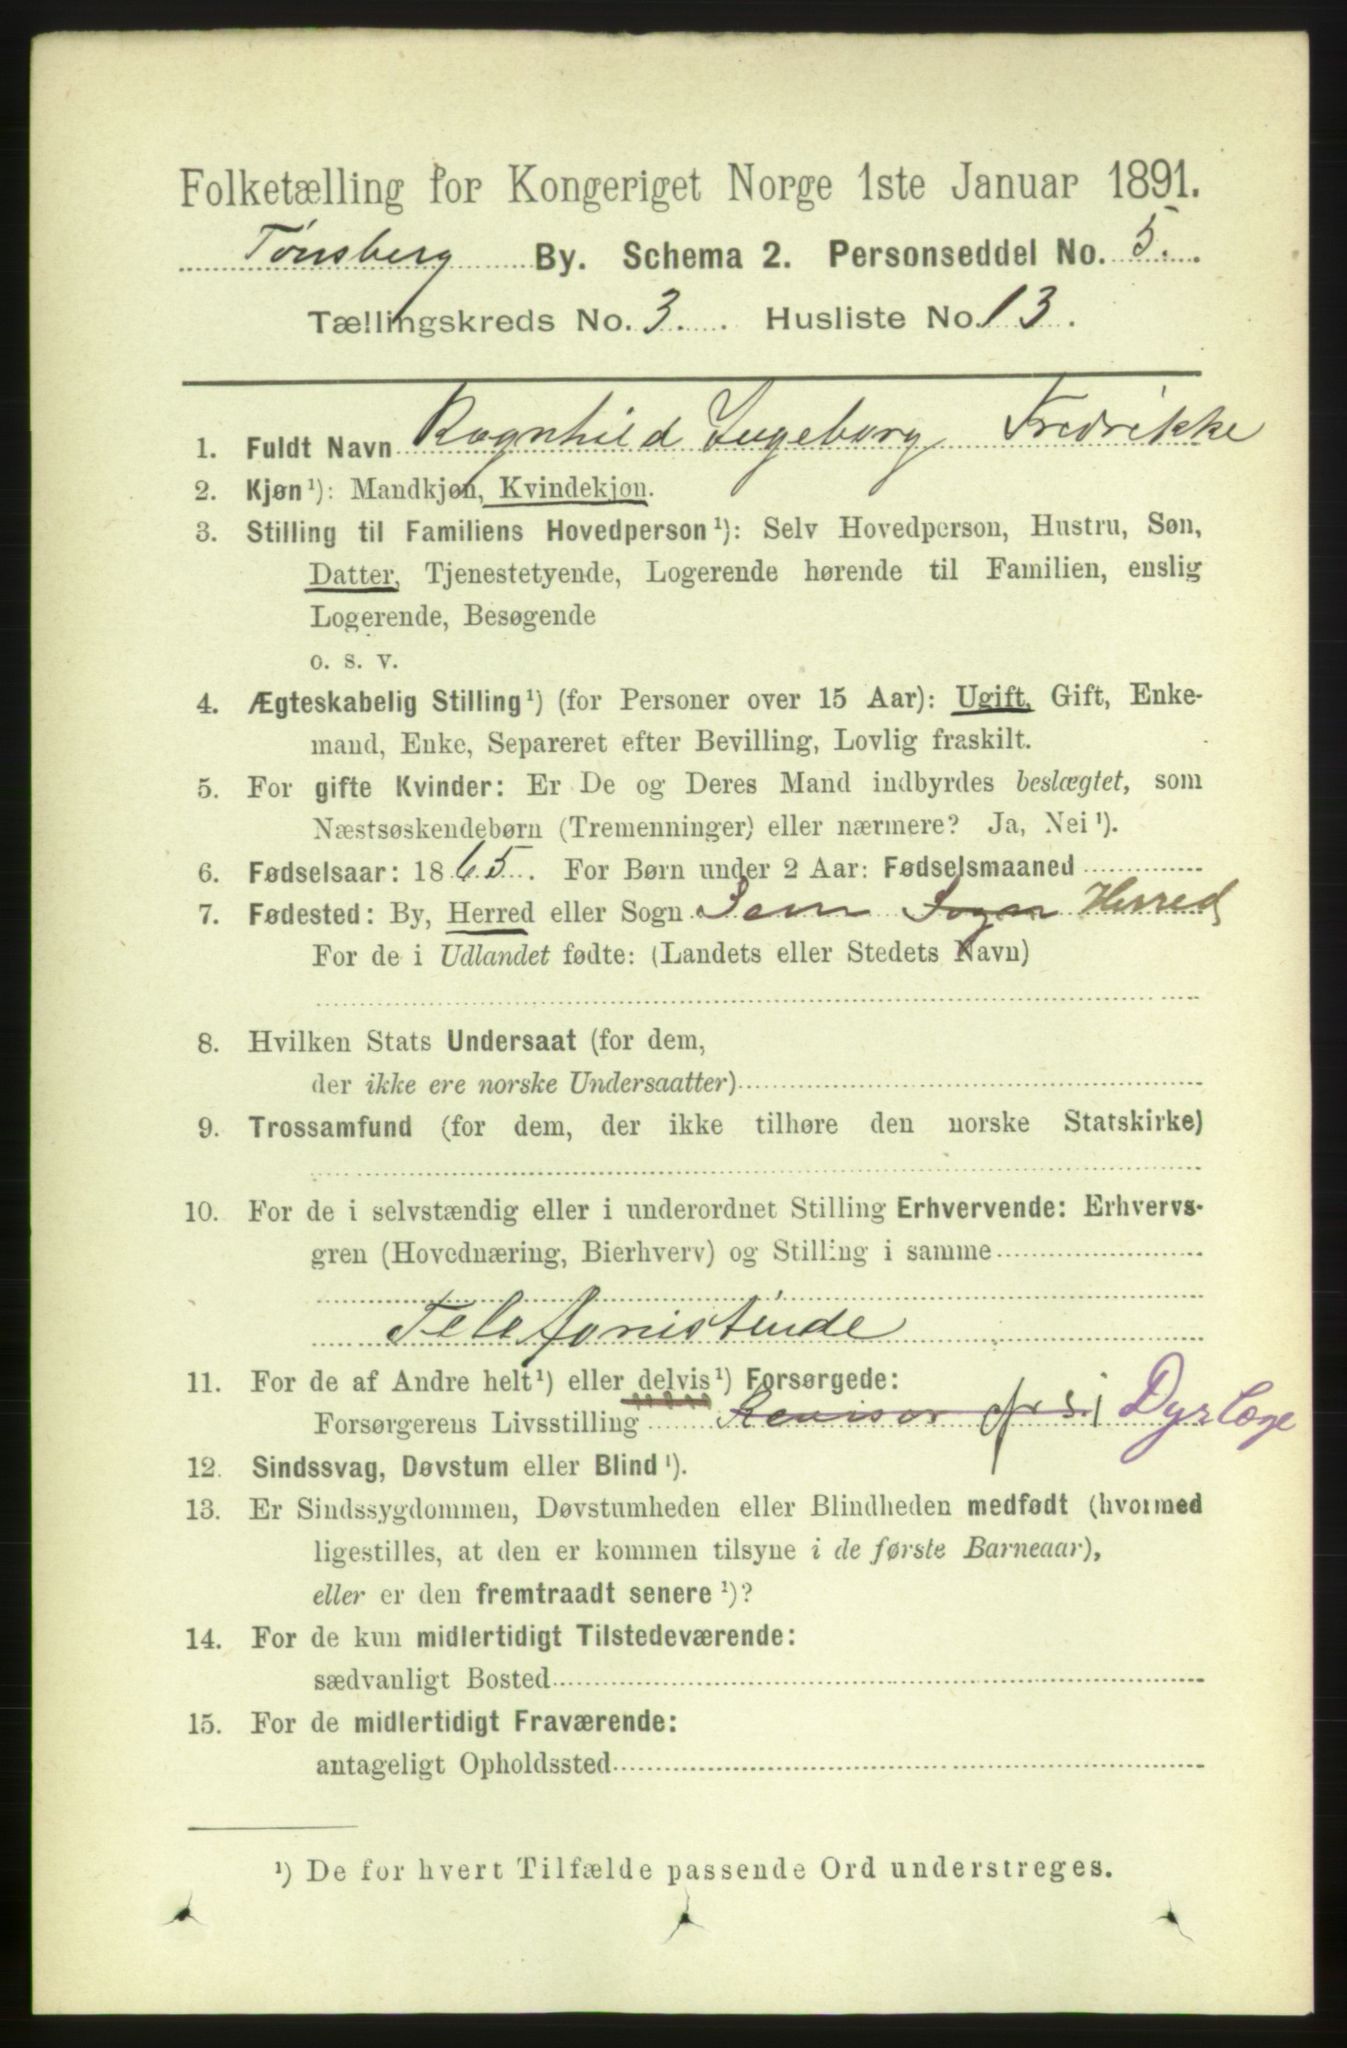 Folketælling for Kongeriget Norge 1ste Januar 1891.
Tønsberg By. Schema 2. Personseddel No. 5.
Tællingskreds No. 3. Husliste No. 13.
1. Fuldt Navn Ragnhild Ingeborg Fredrikke
2. Kjøn¹): Mandkjøn, Kvindekjøn.
3. Stilling til Familiens Hovedperson¹): Selv Hovedperson, Hustru, Søn,
Datter, Tjenestetyende, Logerende hørende til Familien, enslig
Logerende, Besøgende
o. s. v.
4. Ægteskabelig Stilling¹) (for Personer over 15 Aar): Ugift, Gift, Enke-
mand, Enke, Separeret efter Bevilling, Lovlig fraskilt.
5. For gifte Kvinder: Er De og Deres Mand indbyrdes beslægtet, som
Næstsøskendebørn (Tremenninger) eller nærmere? Ja, Nei¹).
6. Fødselsaar: 1865. For Børn under 2 Aar: Fødselsmaaned
7. Fødested: By, Herred eller Sogn Sem Sogn Herred
For de i Udlandet fødte: (Landets eller Stedets Navn)
8. Hvilken Stats Undersaat (for dem,
der ikke ere norske Undersaatter)
9. Trossamfund (for dem, der ikke tilhøre den norske Statskirke)
10. For de i selvstændig eller i underordnet Stilling Erhvervende: Erhvervs-
gren (Hovednæring, Bierhverv) og Stilling i samme
Telefonistinde
11. For de af Andre helt¹) eller delvis¹) Forsørgede:
Forsørgerens Livsstilling Revisor Dyrlæge
12. Sindssvag, Døvstum eller Blind¹).
13. Er Sindssygdommen, Døvstumheden eller Blindheden medfødt (hvormed
ligestilles, at den er kommen tilsyne i de første Barneaar),
eller er den fremtraadt senere¹)?
14. For de kun midlertidigt Tilstedeværende:
sædvanligt Bosted
15. For de midlertidigt Fraværende:
antageligt Opholdssted
¹) De for hvert Tilfælde passende Ord understreges.